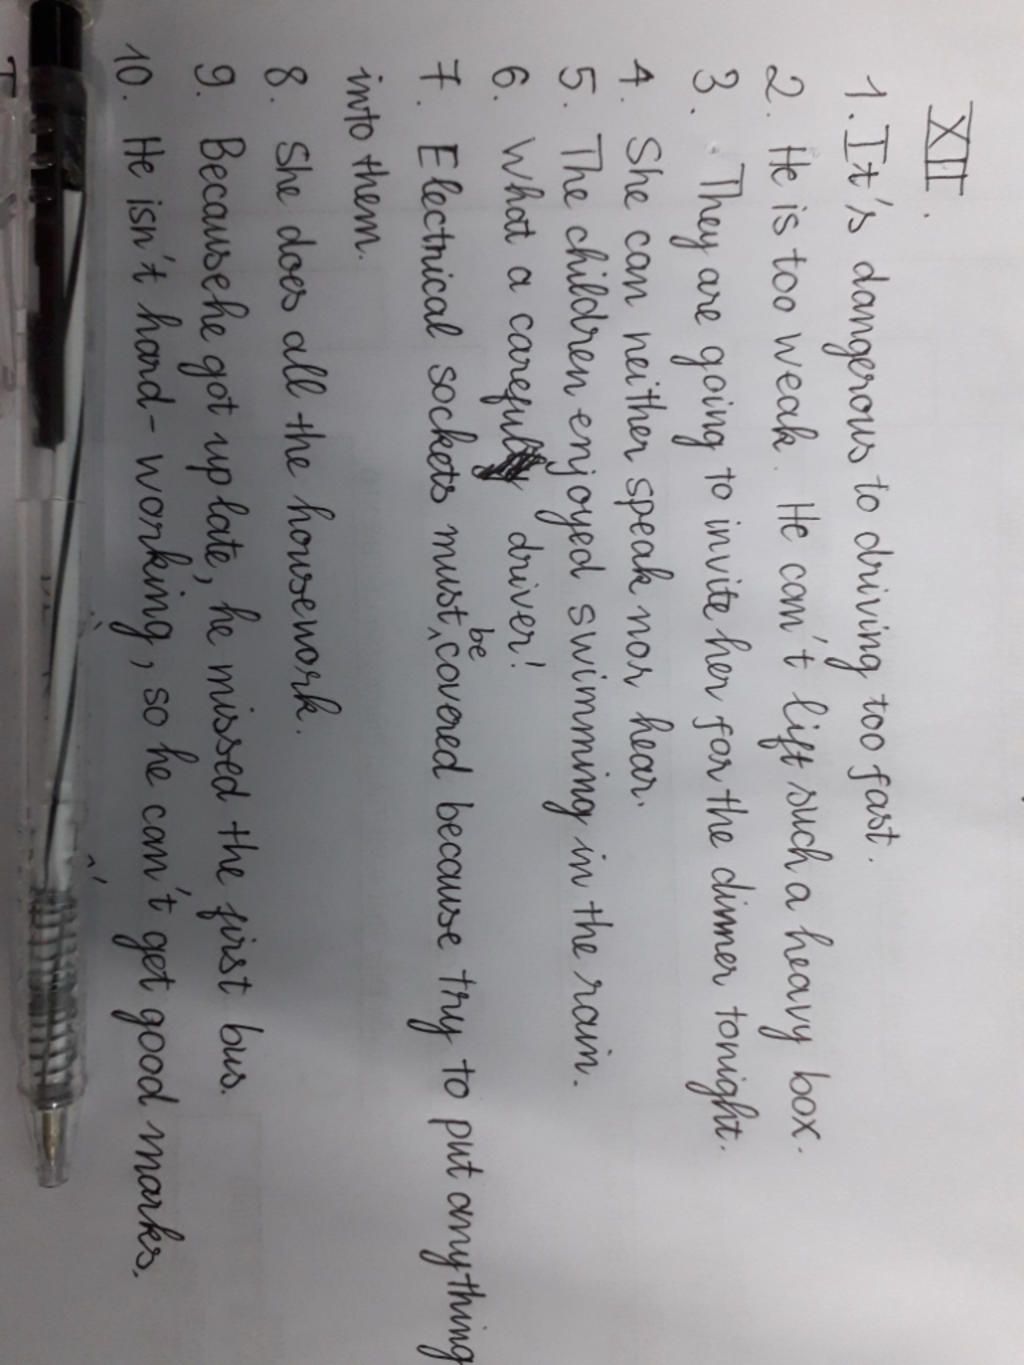 XII.
1. It's dangerous to driving too fast.
2. He is too weak. He can't lift such a heavy box.
3. They are going to invite her for the dinner tonight.
4. She can neither speak nor hear.
5. The children enjoyed swimming in the rain.
6. What a careful driver!
7. Electrical sockets must be covered because try to put anything
into them.
8. She does all the housework.
9. Because he got up late, he missed the first bus.
10. He isn't hard-working, so he can't get good marks.